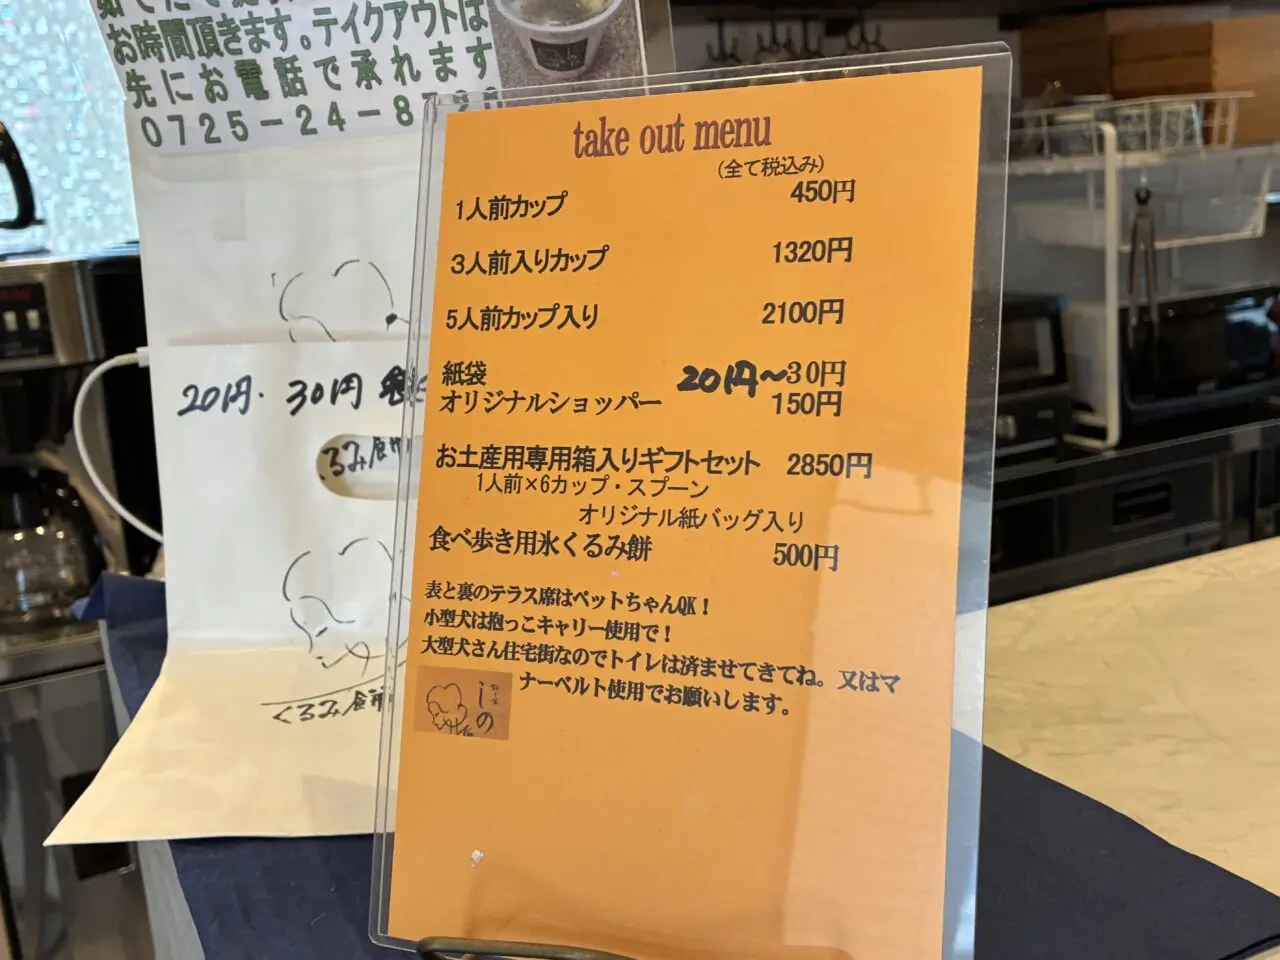 お時間頂きます。テイクアウトは
先にお電話で承れます
0725-24-8
take out menu
(全て税込み)
1人前カップ 450円
3人前入りカップ 1320円
5人前カップ入り 2100円
紙袋 20円～30円
オリジナルショッパー 150円
お土産用専用箱入りギフトセット 2850円
1人前×6カップ・スプーン
オリジナル紙バッグ入り
食べ歩き用氷くるみ餅 500円
表と裏のテラス席はペットちゃんOK！
小型犬は抱っこキャリー使用で！
大型犬さん住宅街なのでトイレは済ませてきてね。又はマ
ナーベルト使用でお願いします。
しの
20円. 30円
くるみ食